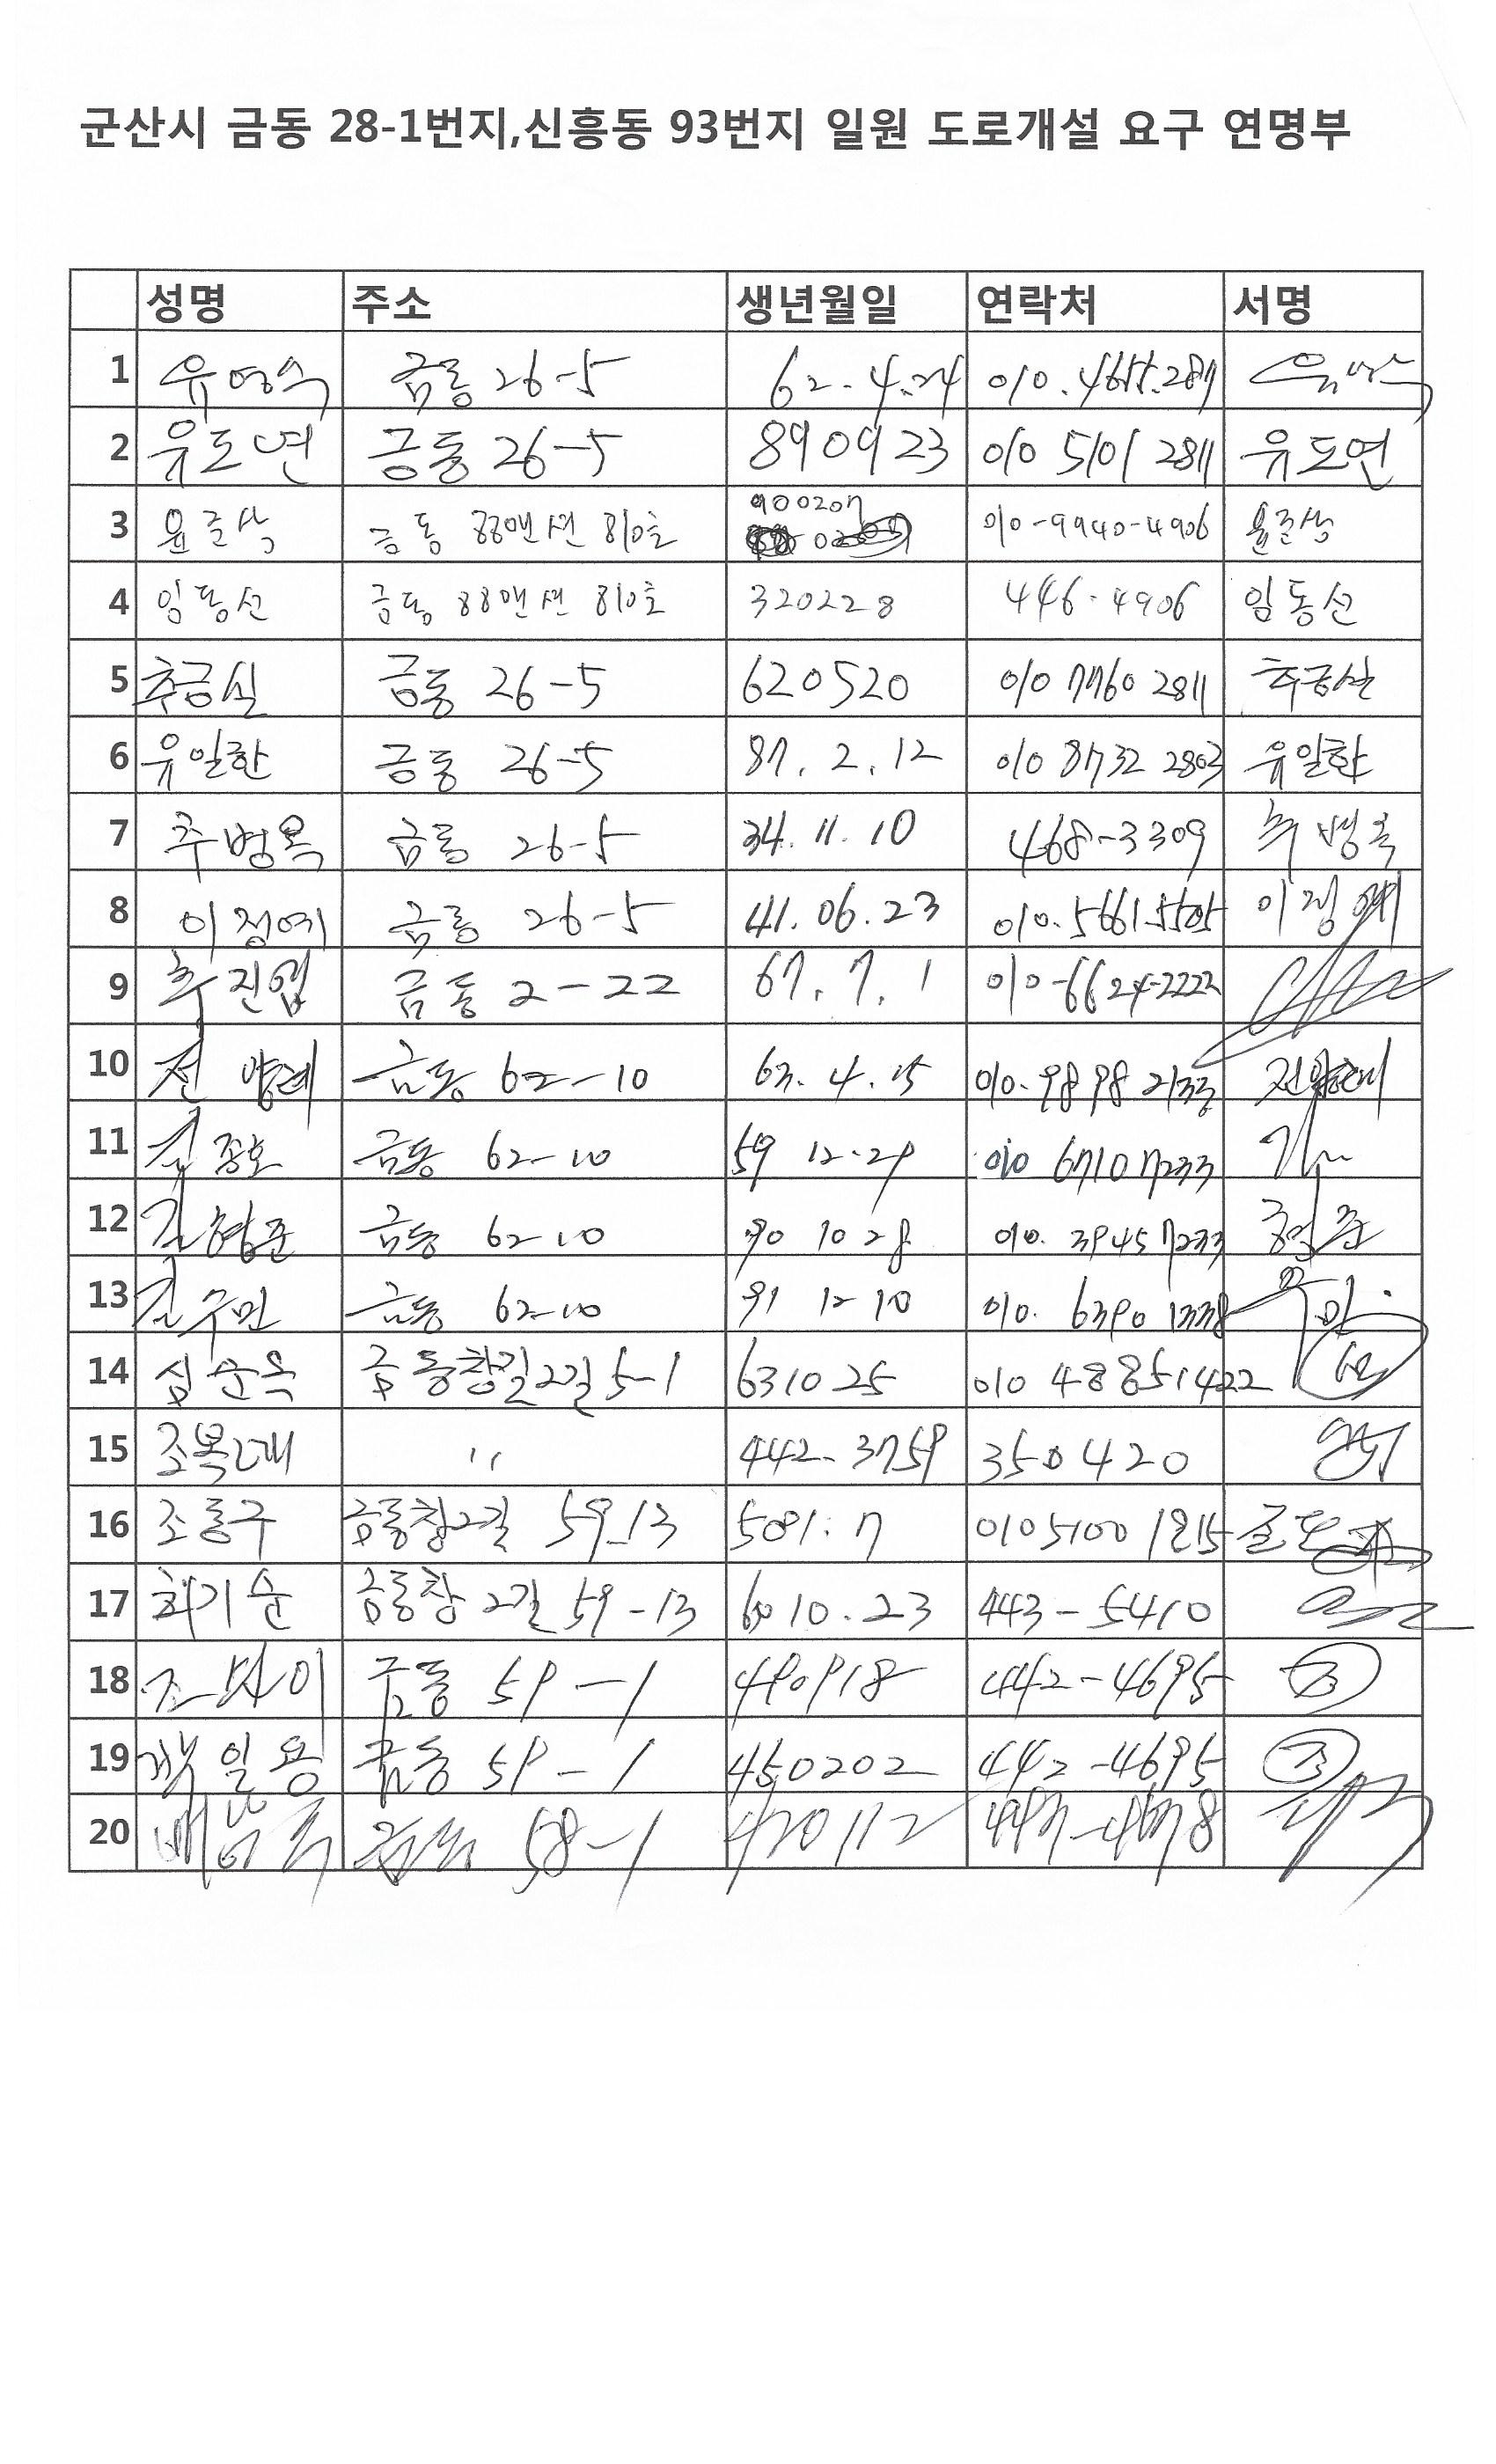 군산시 금동 28-1번지,신흥동 93번지 일원 도로개설 요구 연명부
성명 주소 생년월일 연락처 서명
1 유영수 금동 26-5 62.4.24 010.4655.2811
2 유도연 금동 26-5 890923 010 5101 2811 유도연
3 윤준상 금동 88맨션 810호 900207 010-9940-4906 윤준상
4 임동선 금동 88맨션 810호 320228 446-4906 임동선
5 추금실 금동 26-5 620520 010 7760 2811 추금실
6 유일한 금동 26-5 87.2.12 010 8732 2803 유일한
7 추병옥 금동 26-5 34.11.10 468-3309 추병옥
8 이정예 금동 26-5 41.06.23 이정예
9 추진엽 금동 2-22 67.7.1 010-6624-2222
10 전양례 금동 62-10 63.4.15 010.9898
11 김종호 금동 62-10 59 12.29 010 6710 7233
12 김형준 금동 62-10 90 10 28 010. 3945 7233 형준
13 김수민 금동 62-10 91 12 10 010. 6390 1338 수민
14 심순옥 금동창길2길 5-1 631025 010 48851422
15 조복래 " 442-3759 350420
16 조동구 금동창2길 59-13 5081.7 0105100 1815
17 최기순 금동창2길 59-13 6010.23 443-5410
18 금동 59-1 490918 442-4695
19 일용 금동 59-1 450202 442-4695
20 금동 58-1 420112